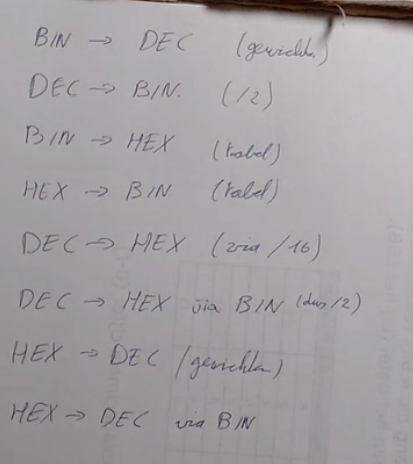 BIN → DEC (gewichten)
DEC → BIN. (/2)
BIN → HEX (tabel)
HEX → BIN (tabel)
DEC → HEX (via /16)
DEC → HEX via BIN (dus /2)
HEX → DEC (gewichten)
HEX → DEC via BIN